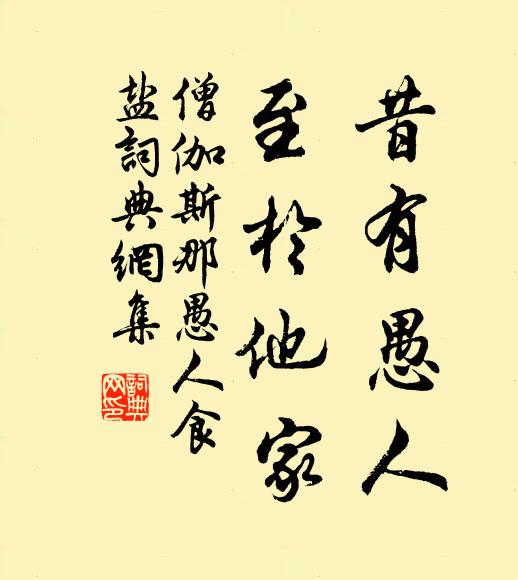 昔有愚人
至於他家
僧伽斯那愚人食
盐詞典網集
詞典
网印